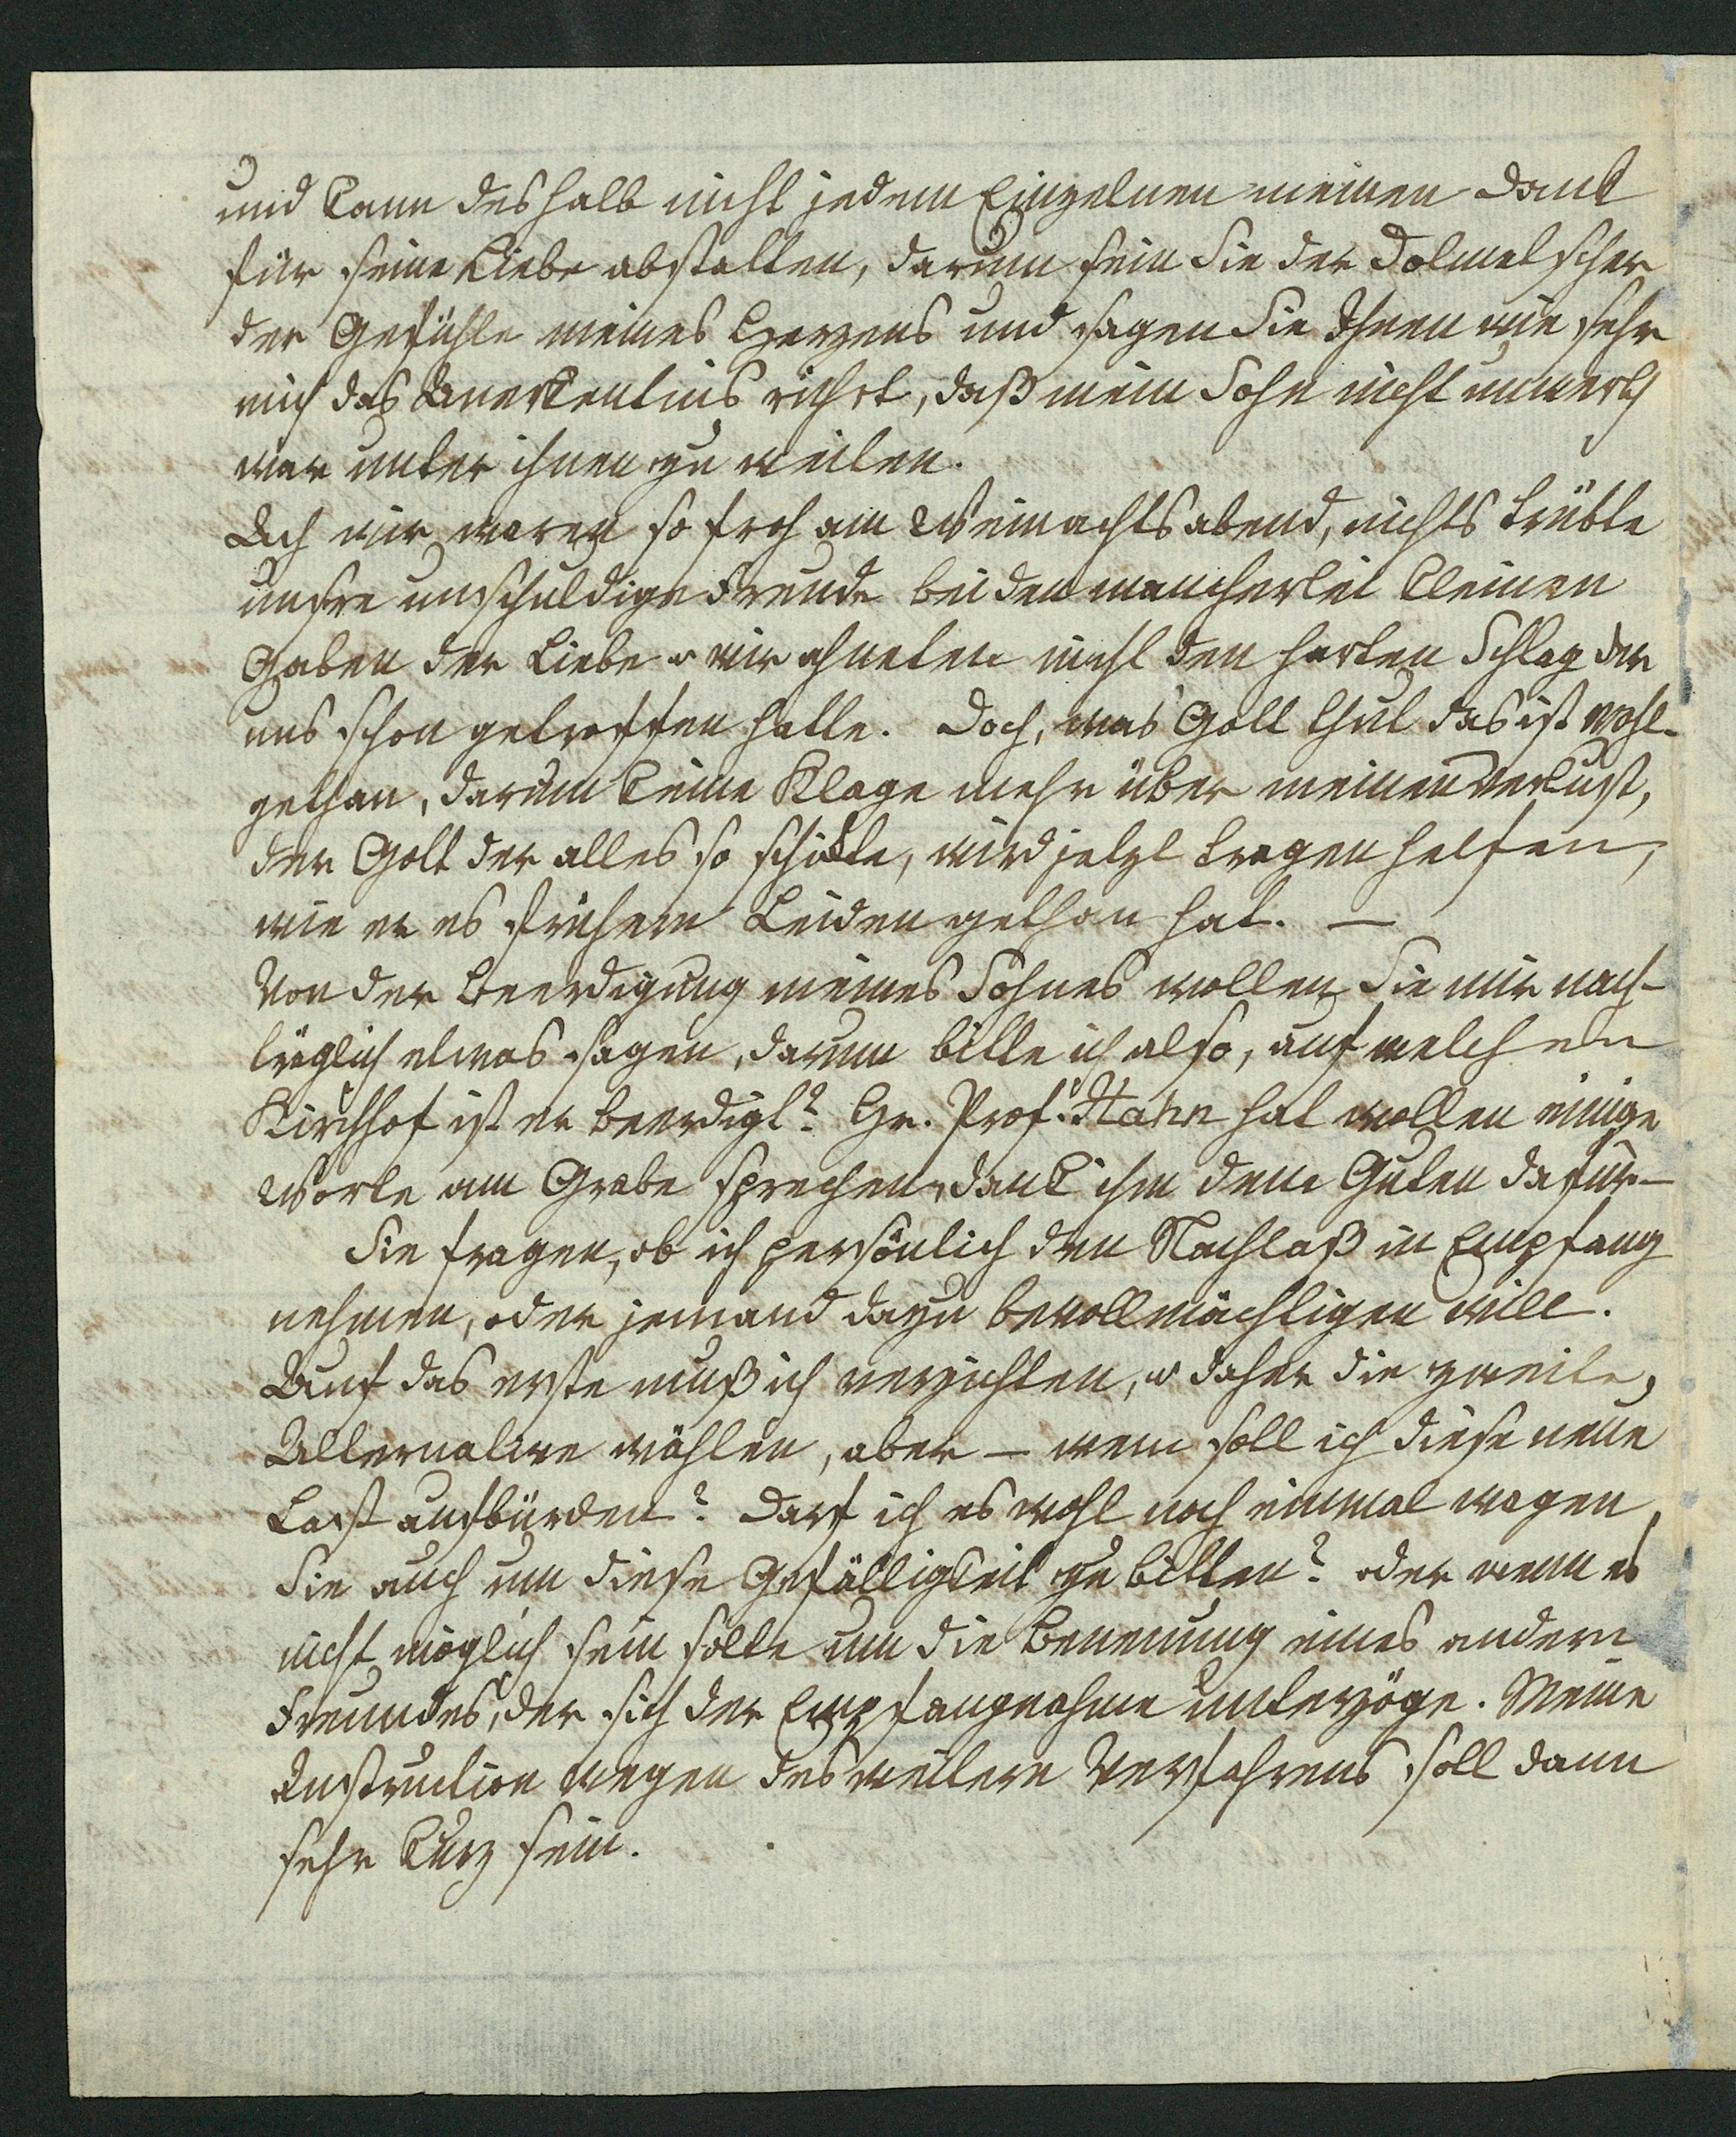 und kann deshalb nicht jedem Einzelnen meinen Dank
für seine Liebe abstatten, darum sein Sie der Dolmetscher
der Gefühle meines Herzens und sagen Sie Ihnen wie sehr
mich das Anerkentnis rührt, daß mein Sohn nicht unwerth
war unter ihnen zu weilen.
Ach wir waren so froh am Weinachtsabend, nichts trübte
unsre unschuldige Freude bei den mancherlei kleinen
Gaben der Liebe u wir ahneten nicht den harten Schlag der
uns schon getroffen hatte. Doch, was Gott thut das ist wohl-
gethan, darum keine Klage mehr über meinen Verlust,
der Gott der alles so schikte, wird jetzt tragen helfen,
wie er es frühern Leiden gethan hat. —
Von der Beerdigung meines Sohnes wollen Sie mir nach-
träglich etwas sagen, darum bitte ich also, auf welchen
Kirchhof ist er beerdigt? Hr. Prof. Hahn hat wollen einige
Worte am Grabe sprechen, dank ihm dem Guten dafür —
Sie fragen, ob ich persönlich den Nachlaß in Empfang
nehmen, oder jemand dazu bevollmächtigen will.
Auf das erste muß ich verzichten, u daher die zweite,
Alternative wählen, aber — wem soll ich diese neue
Last aufbürden? Darf ich es wohl noch einmal wagen
Sie auch um diese Gefälligkeit zu bitten? oder wenn es
nicht möglich sein sollte um die Benennung eines andern
Freundes, der sich der Empfangnahme unterzöge. Meine
Instruction wegen des weitern Verfahrens soll dann
sehr kurz sein.